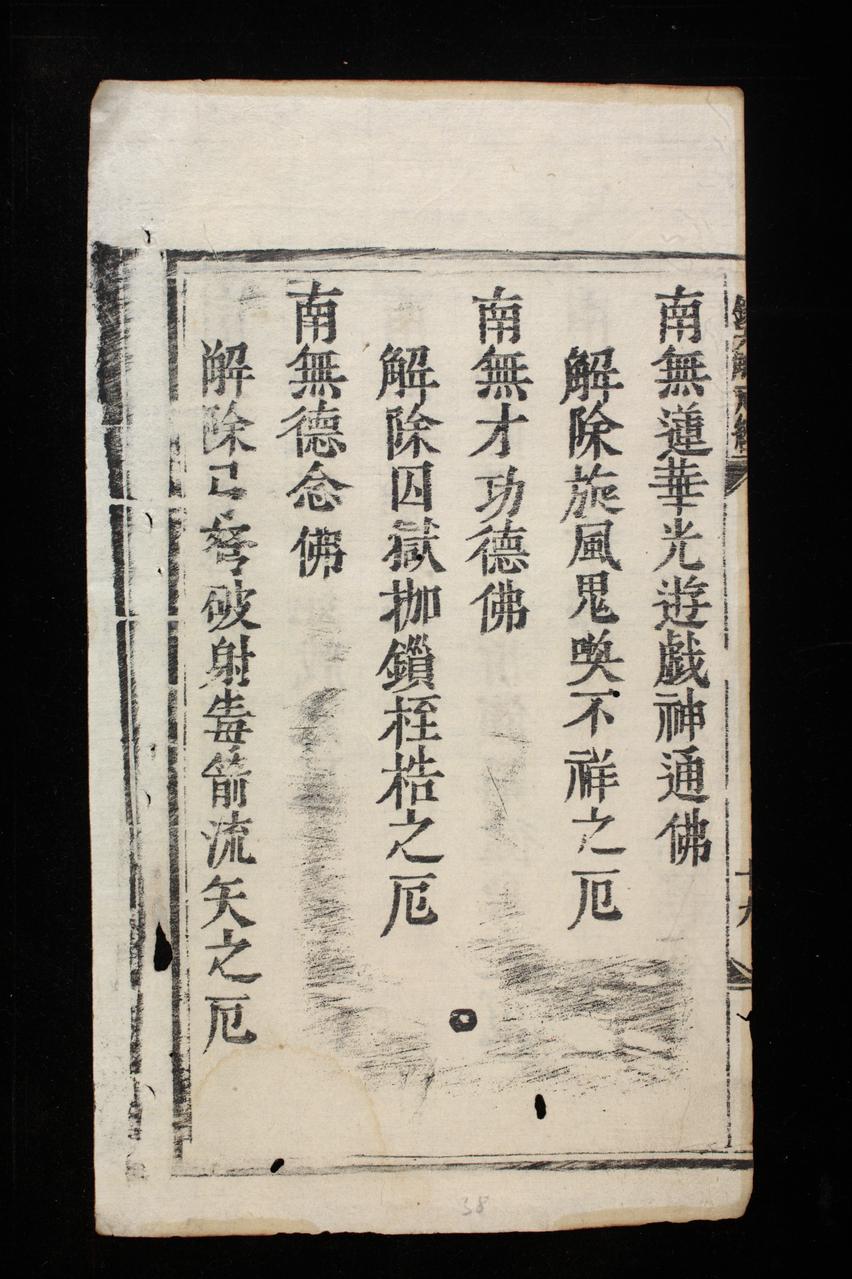 南無蓮華光遊戯神通佛
解除旋風鬼唤不祥之厄
南無才功德佛
解除囚獄枷鎖桎梏之厄
南無德念佛
解除弓弩破射毒箭流矢之厄
十九
38